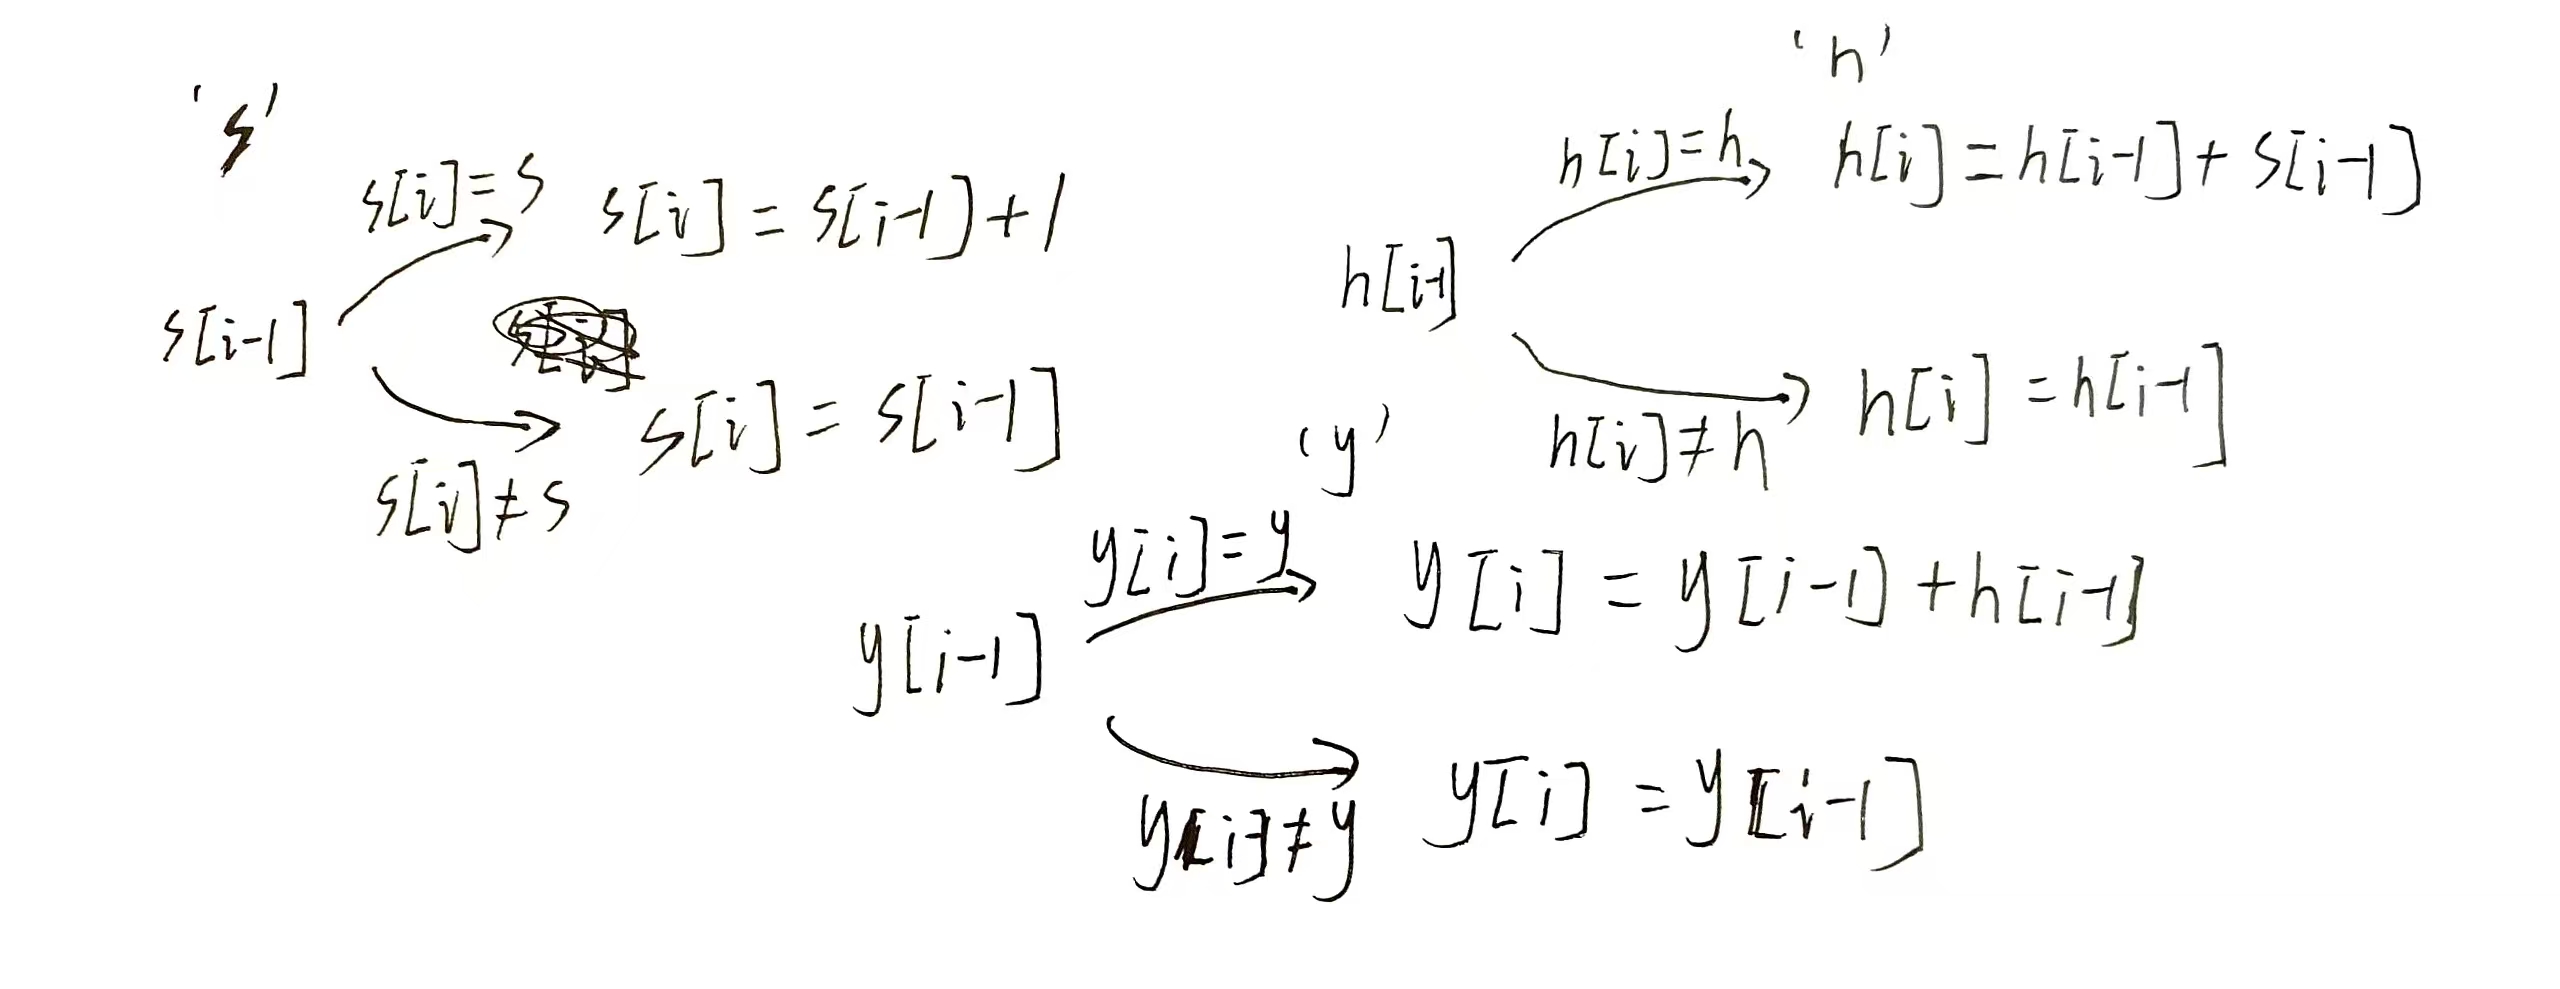 's'
s[i]=s s[i] = s[i-1]+1
s[i-1]
s[i] = s[i-1]
s[i]≠s
'h'
h[i]=h h[i]=h[i-1]+s[i-1]
h[i-1]
h[i]=h[i-1]
h[i]≠h
'y'
y[i]=y y[i] = y[i-1]+h[i-1]
y[i-1]
y[i]≠y y[i]=y[i-1]